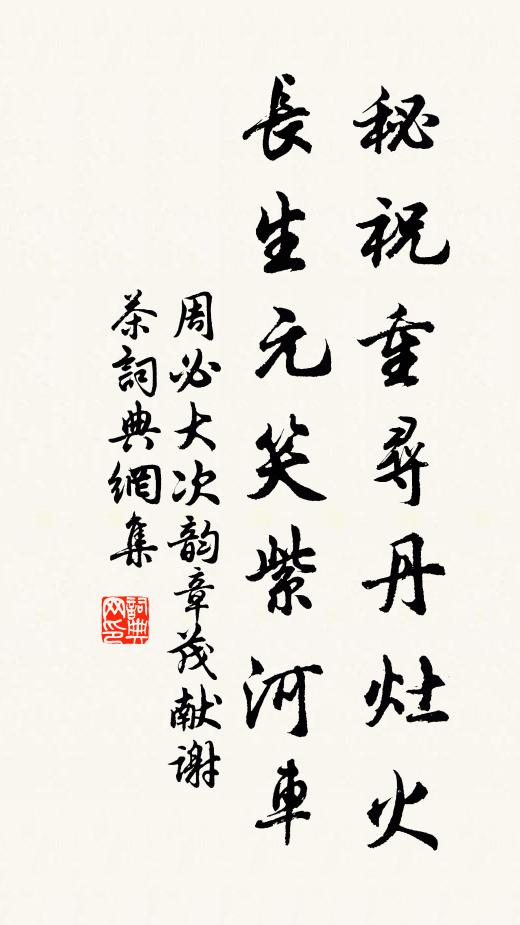 秘祝重尋丹灶火
長生元笑紫河車
周必大次韵章茂献谢
茶詞典網集
詞典网印